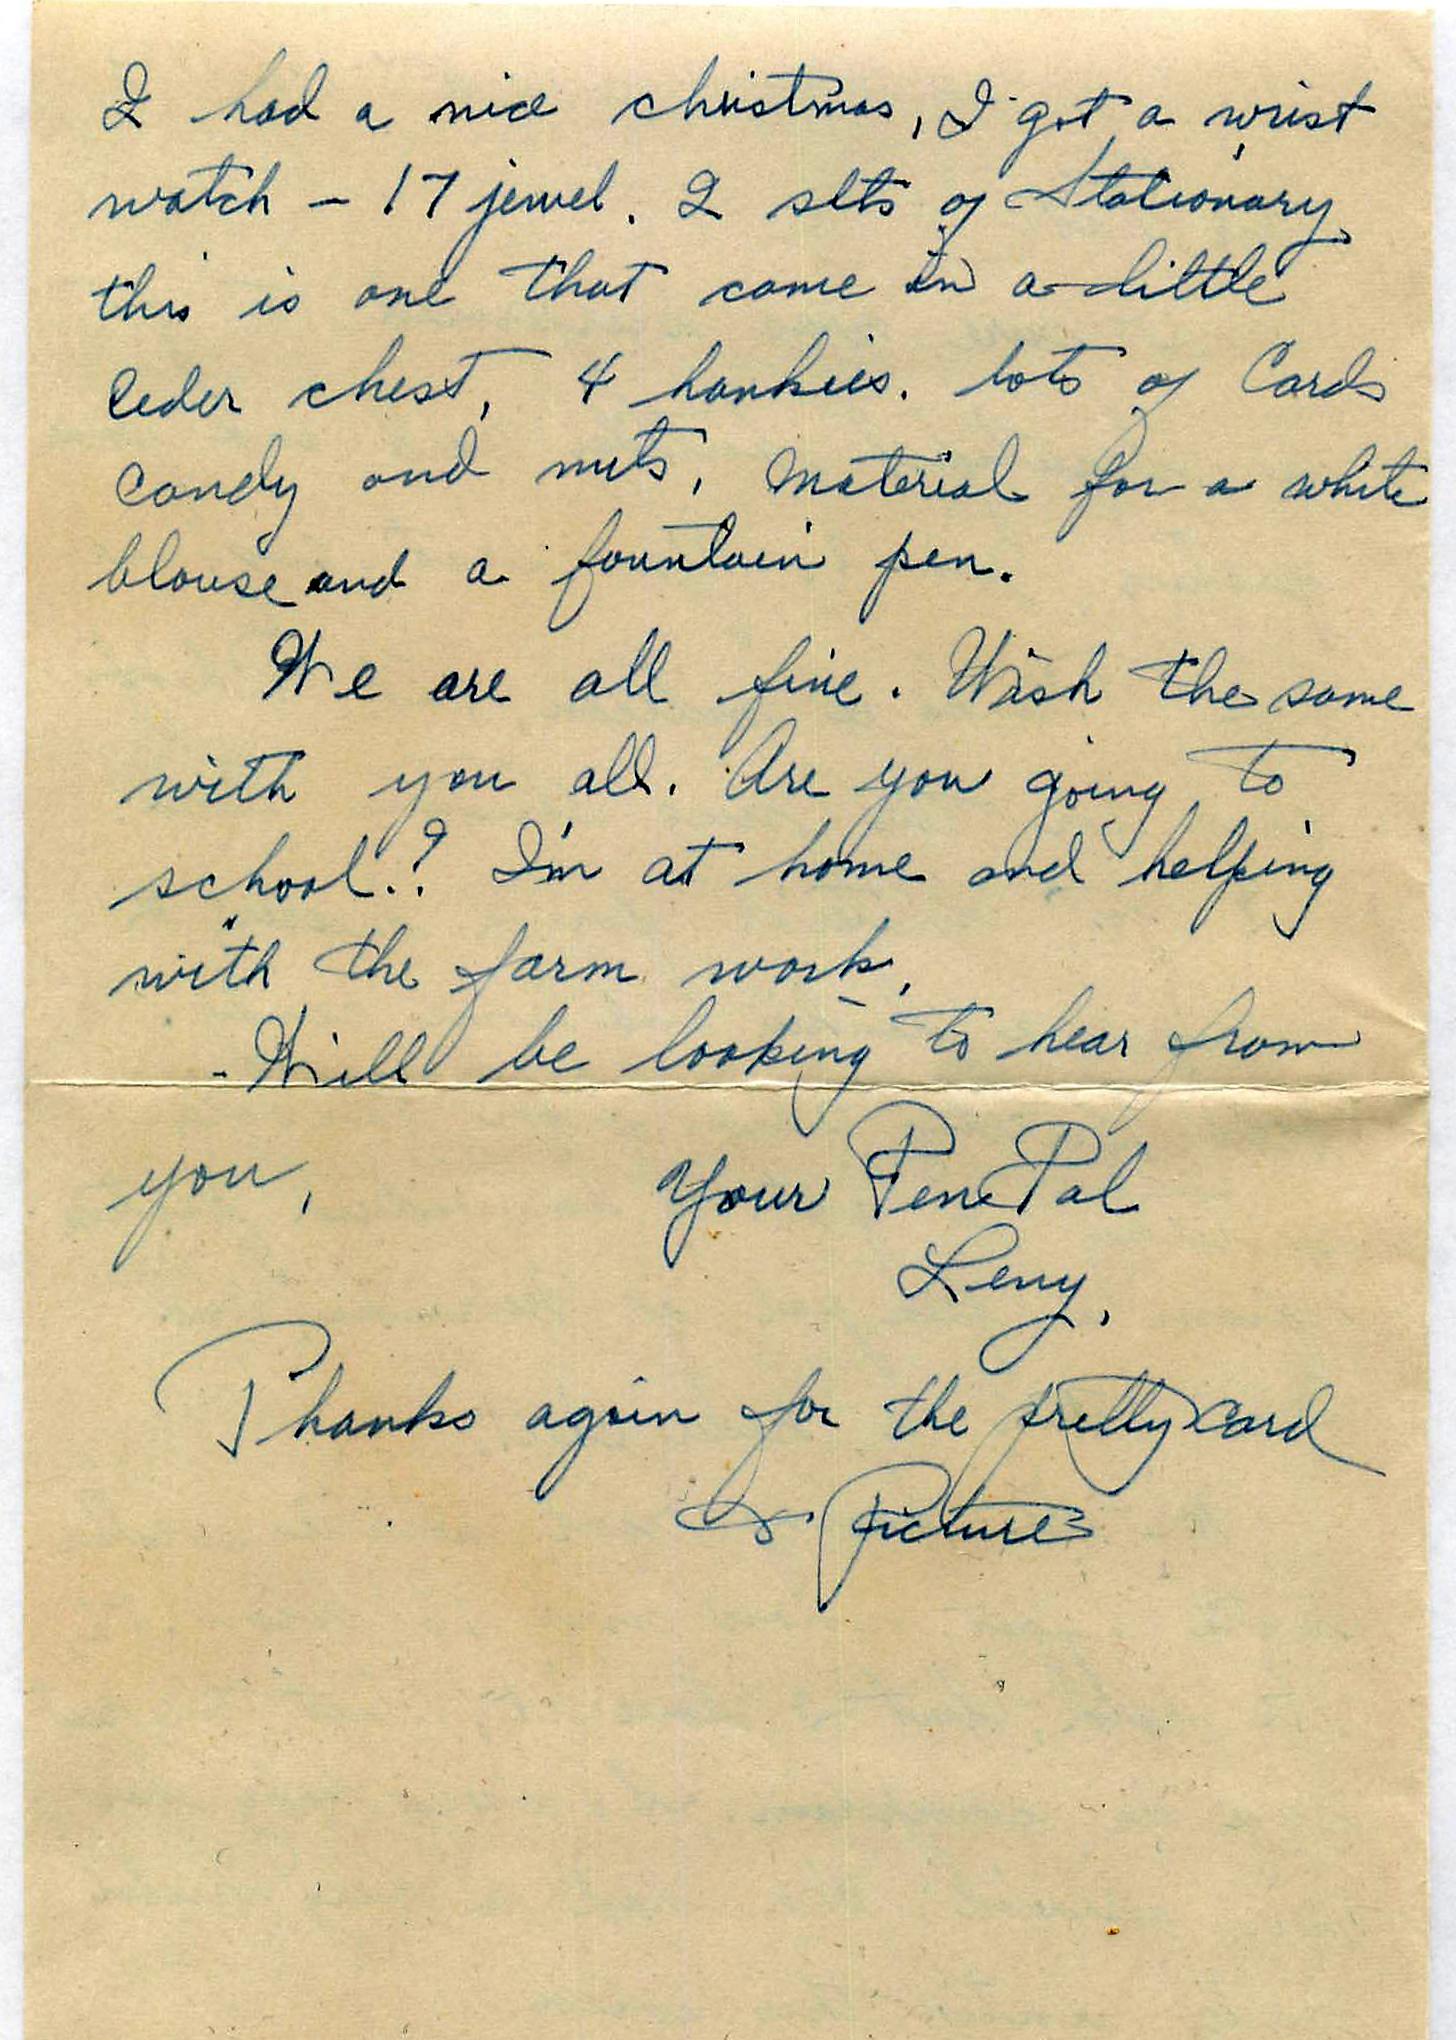 I had a nice christmas, I got a wrist
watch - 17 jewel. 2 sets of Stationary
this is one that came in a little
Ceder chest, 4 hankies. lots of Cards
Candy and nuts, Material for a white
blouse and a fountain pen.
We are all fine. Wish the same
with you all. Are you going to
school.? I'm at home and helping
with the farm work.
-Will be looking to hear from
you,
Your Pen Pal
Leny,
Thanks again for the pretty card
& Picture